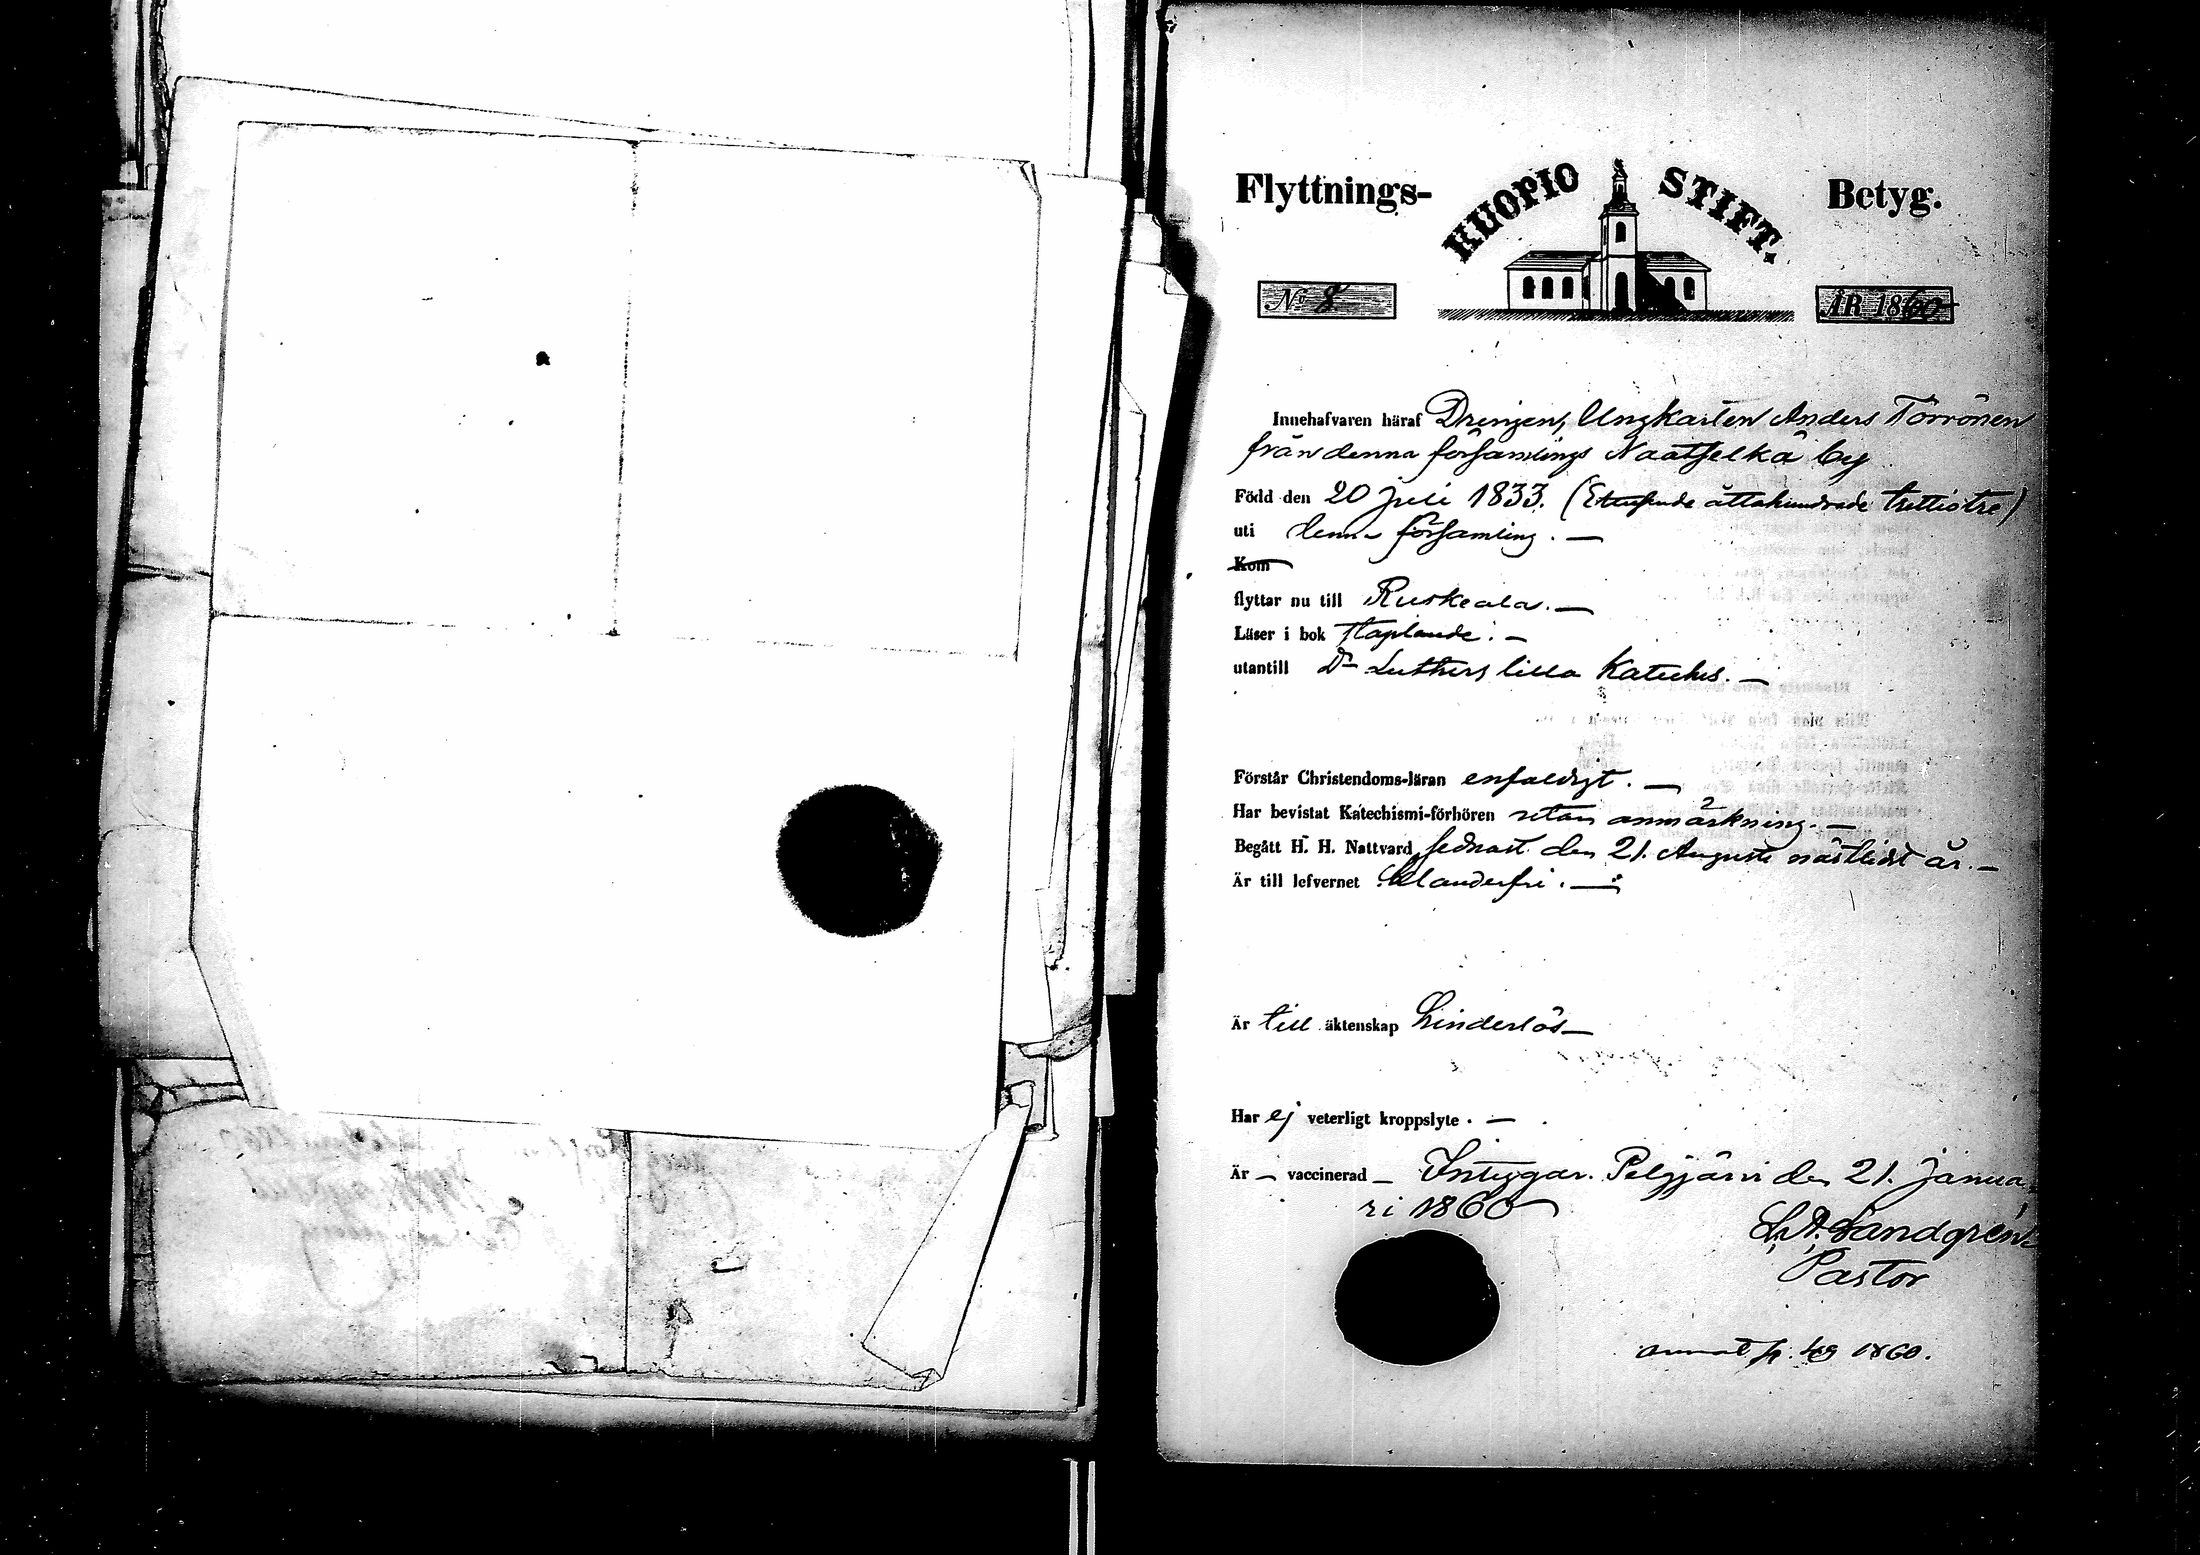 Flyttnings- KUOPIO STIFT. Betyg.
No 8 ÅR 1860
Innehafvaren häraf Drengen, Ungkarlen Anders Törrönen
från denna församlings Naatselkä by
Född den 20 juli 1833. (Ettusende åttahundrade trettiotre)
uti denna församling. —
Kom
flyttar nu till Ruskeala. —
Läser i bok staplande. —
utantill Dr Luthers lilla Kateches. —
Förstår Christendoms-läran enfaldigt. —
Har bevistat Katechismi-förhören utan anmärkning. —
Begått H. H. Nattvard sednast den 21. Augusti nästlidet år. —
Är till lefvernet Klanderfri. —
Är till äktenskap hinderlös —
Har ej veterligt kroppslyte. —
Är — vaccinerad — Intygar. Pelgjärvi den 21. Janua
ri 1860
Landgrén
Pastor
p. 49 1860.